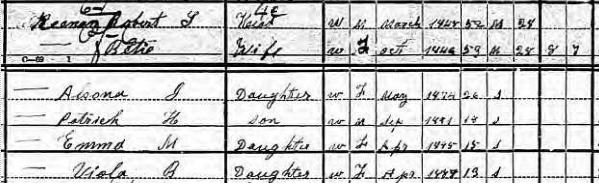 Keenan Robert S Head W M March 1848 52 M 28
— Wife W F Oct 1846 53 M 28 8 7
— J Daughter W F May 1874 26 S
— Patrick H Son W M Sep 1881 18 S
— Emma M Daughter W F Apr 1885 15 S
— Viola B Daughter W F Apr 1887 13 S